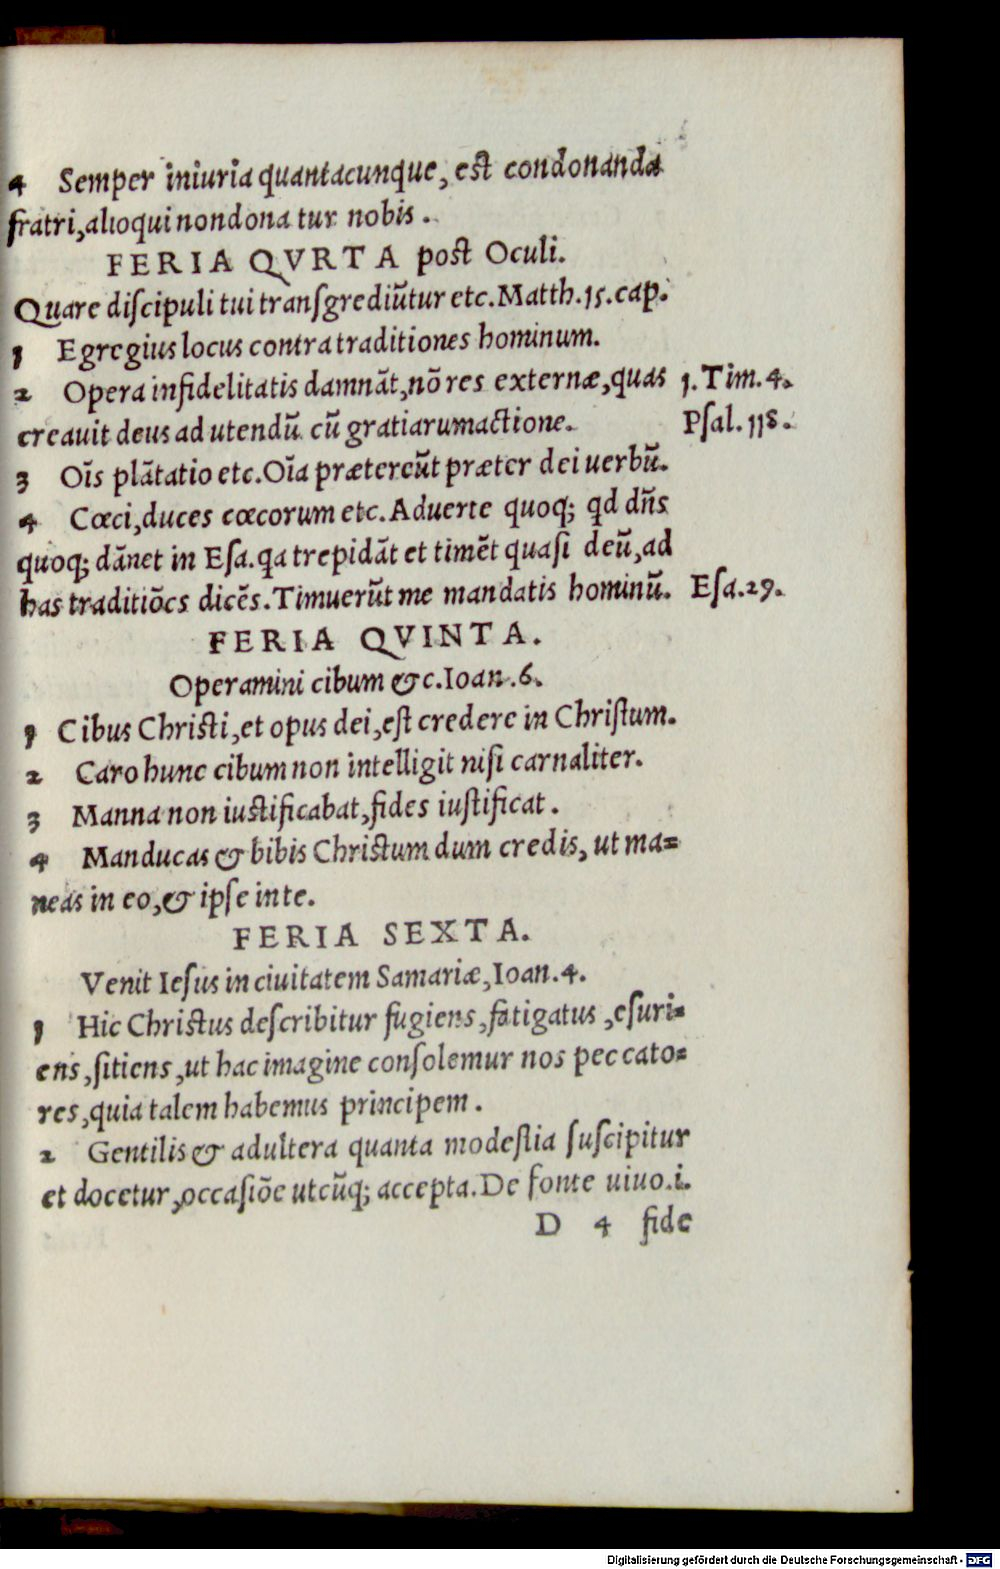 4 Semper iniuria quantacunque, est condonanda
fratri, alioqui non dona tur nobis.
FERIA QVRTA post Oculi.
Quare diſcipuli tui tranſgrediūtur etc. Matth. 15. cap.
1 Egregius locus contra traditiones hominum.
2 Opera infidelitatis damnāt, nō res externæ, quas 1. Tim. 4.
creauit deus ad utendū cū gratiarumactione. Pſal. 118.
3 Oīs plātatio etc. Oīa prætereūt præter dei uerbū.
4 Cœci, duces cœcorum etc. Aduerte quoq; qd dn̄s
quoq; dānet in Eſa. qa trepidāt et timēt quaſi deū, ad
has traditiōes dicēs. Timuerūt me mandatis hominū. Eſa. 29.
FERIA QVINTA.
Operamini cibum &c. Ioan. 6.
1 Cibus Chriſti, et opus dei, eſt credere in Chriſtum.
2 Caro hunc cibum non intelligit niſi carnaliter.
3 Manna non iuſtificabat, fides iuſtificat.
4 Manducas & bibis Chriſtum dum credis, ut ma=
neas in eo, & ipſe in te.
FERIA SEXTA.
Venit Ieſus in ciuitatem Samariæ, Ioan. 4.
1 Hic Chriſtus deſcribitur fugiens, fatigatus, eſuri=
ens, ſitiens, ut hac imagine conſolemur nos peccato=
res, quia talem habemus principem.
2 Gentilis & adultera quanta modeſtia ſuſcipitur
et docetur, occaſiōe utcūq; accepta. De fonte uiuo. i.
D 4 fide
Digitalisierung gefördert durch die Deutsche Forschungsgemeinschaft - DFG